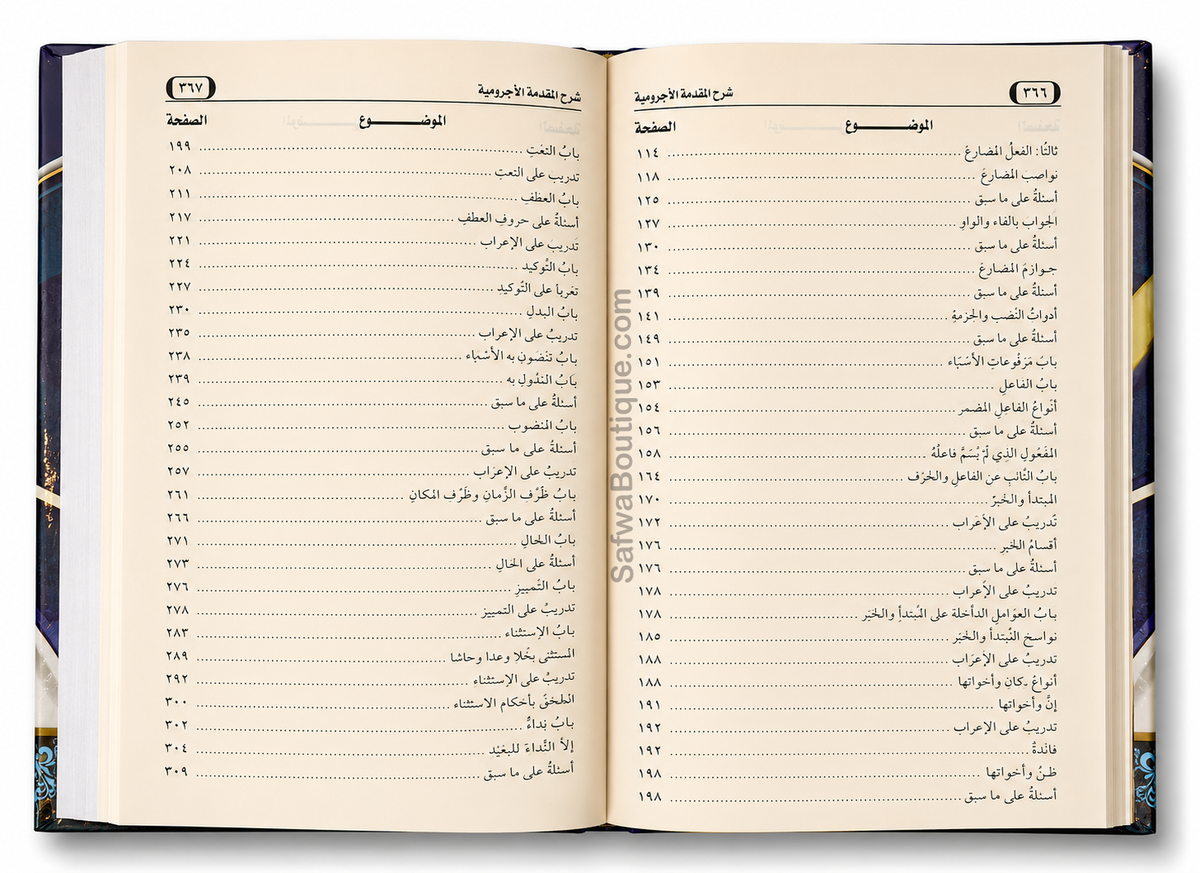 ٣٦٦
شرح المقدمة الأجرومية
الموضــــــــوع الصفحة
ثالثًا: الفعلُ المضارعُ ١١٤
نواصبَ المضارعَ ١١٨
أسئلةُ على ما سبق ١٢٥
الجوابَ بالفاء والواوِ ١٢٧
أسئلةُ على ما سبق ١٣٠
جوازمَ المضارعَ ١٣٤
أسئلةُ على ما سبق ١٣٩
أدواتُ النْصَب والجزمةِ ١٤١
أسئلةُ على ما سبق ١٤٩
بابَ مَرَفُوعاتِ الأسْبَاء ١٥١
بابُ الفاعلِ ١٥٣
أنْواعُ الفاعلِ المضمر ١٥٤
أسئلةُ على ما سبق ١٥٦
المفَعُولِ الذِي لَمْ بُسَمَّ فاعلُهُ ١٥٨
بابُ النْانبِ عن الفاعلِ والخَرَف ١٦٤
المبتدأ والخْبرّ ١٧٠
تَدريبُ على الأعَراب ١٧٢
أقسامُ الخْبر ١٧٦
أسئلةُ على ما سبق ١٧٦
تدريبُ على الأعراب ١٧٨
بابُ العوَاملِ الدأخلة على المْبتدأِ والخْبَر ١٧٨
نواسخ النْبتدأ والخْبَر ١٨٥
تدريبُ على الأعَرَاب ١٨٨
أنواعَ ـكانِ وأخواتها ١٨٨
إنَّ وأخواتها ١٩١
تدريبُ على الإعراب ١٩٢
فائدةٌ ١٩٢
ظنُ وأخواتها ١٩٨
أسئلةُ على ما سبق ١٩٨
٣٦٧
شرح المقدمة الأجرومية
الموضــــــــوع الصفحة
بابُ التعَتِ ١٩٩
تدريب على التعتِ ٢٠٨
بابُ العطفِ ٢١١
أسئلةُ على حروفِ العطفِ ٢١٧
تَدريبَ على الإعراب ٢٢١
بابُ التْوكيد ٢٢٤
على التْوكيدِ ٢٢٧
بابُ البدلِ ٢٣٠
تدريبُ على الإعراب ٢٣٥
بابُ تنْصَونِ به الأسْبَاء ٢٣٨
بابُ النذُولِ به ٢٣٩
أسئلةُ على ما سبق ٢٤٥
بابُ المنصْوب ٢٥٢
أسئلةُ على ما سبق ٢٥٥
تدريبُ على الإعرَاب ٢٥٧
بابُ ظَرْفِ الزَّمانِ وظَرْفِ المكانِ ٢٦١
أسئلةُ على ما سبق ٢٦٦
بابُ الحَالِ ٢٧١
أسئلةُ على الحَالِ ٢٧٣
بابُ التَمييزِ ٢٧٦
تدريبُ على التمييز ٢٧٨
بابُ الإستثناء ٢٨٣
المستثنى بخَلا وعدا وحاشا ٢٨٩
تدريبُ على الإستثناء ٢٩٢
بأحكام الاستثناء ٣٠٠
بابُ بَداءُ ٣٠٢
إلأ النِّداءَ للبعَيْدِ ٣٠٤
أسئلةُ على ما سبق ٣٠٩
SafwaBoutique.com